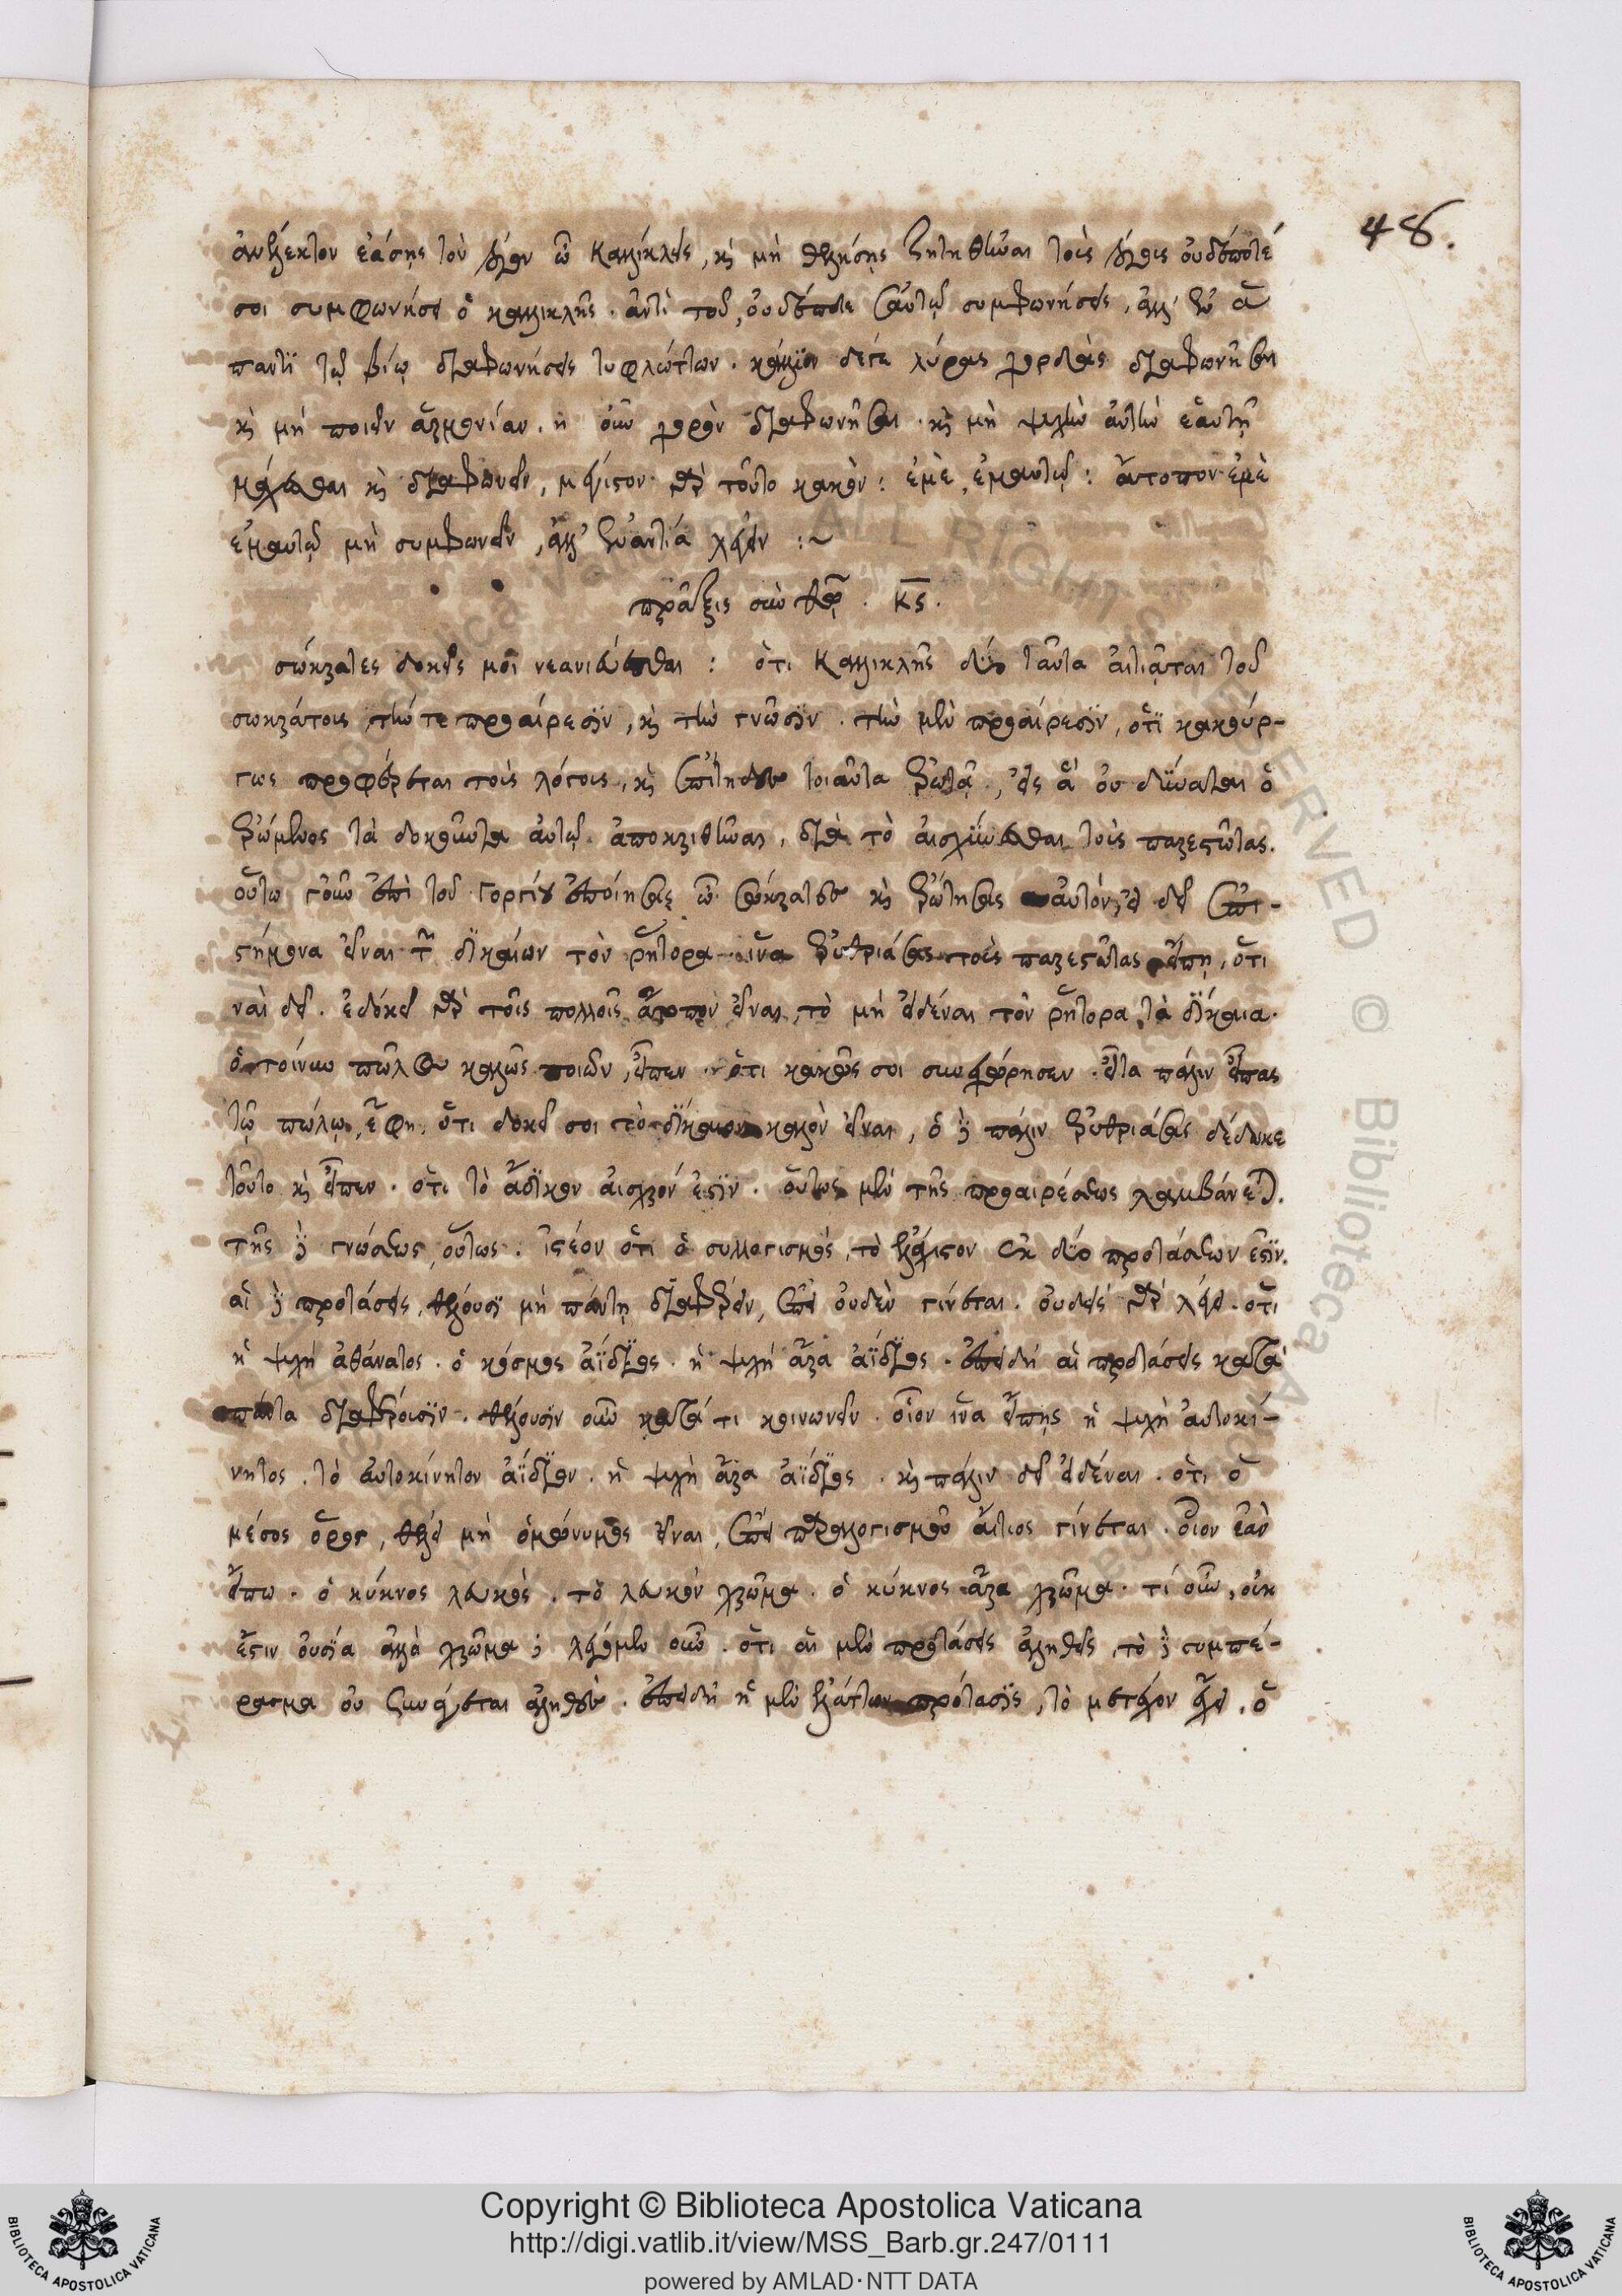 48.
ἀνέλεκτον ἐάσῃς τὸν λόγον ὦ Καλλίκλεις, κὶ μὴ θελήσῃς ζητηθῆναι τοὺς λόγους οὐδέποτέ
σοι συμφωνήσει ὁ καλλικλῆς. ἀντὶ τοῦ, οὐδέποτε σαυτῷ συμφωνήσεις, ἀλλ' ἐν ἅ
παντὶ τῷ βίῳ διαφωνήσεις τυφλώττων. κάλλιον δέ γε λύρας χορδὰς διαφωνῆσαι
κὶ μὴ ποιεῖν ἁρμονίαν. ἢ οὖν χορὸν διαφωνῆσαι. κὶ μὴ ψυχὴν αὐτὴν ἑαυτῇ
μάχεσθαι κὶ διαφωνεῖν, μέγιστον γὰρ τοῦτο κακόν: ἐμὲ ἐμαυτῷ: ἄτοπον ἐμὲ
ἐμαυτῷ μὴ συμφωνεῖν, ἀλλ' ἐναντία λέγειν :~
πρᾶξις σὺν θεῷ. κς.
σώκρατες δοκεῖς μοι νεανιεύεσθαι: ὅτι Καλλικλῆς δύο ταῦτα αἰτιᾶται τοῦ
σωκράτους τήν τε προαίρεσιν, κὶ τὴν γνῶσιν. τὴν μὲν προαίρεσιν, ὅτι κακούρ-
γως προφέρεται τοὺς λόγους, κὶ ἐπίτηδες τοιαῦτα ἐρωτᾷ, εἰς ἃ οὐ δύναται ὁ
ἐρώμενος τὰ δοκοῦντα αὐτῷ ἀποκριθῆναι, διὰ τὸ αἰσχύνεσθαι τοὺς παρεστῶτας.
οὕτω γοῦν ἐπὶ τοῦ Γοργίου ἐποίησας ὦ σώκρατες κὶ ἐρώτησας αὐτόν, εἰ δεῖ ἐπι-
στήμονα εἶναι τῶν δικαίων τὸν ῥήτορα ἵνα ἐρυθριάσας τοὺς παρεστῶτας εἴπῃ, ὅτι
ναὶ δεῖ. ἐδόκει γὰρ τοῖς πολλοῖς ἄτοπον εἶναι, τὸ μὴ εἰδέναι τὸν ῥήτορα τὰ δίκαια.
ὁ τοίνυν πῶλος καλῶς ποιῶν, εἶπεν. ὅτι κακῶς σοι συνεχώρησεν. εἶτα πάλιν εἶπας
τῷ πώλῳ, ἔφη. ὅτι δοκεῖ σοι τὸ δίκαιον καλὸν εἶναι, ὁ δὲ πάλιν ἐρυθριάσας δέδωκε
τοῦτο κὶ εἶπεν. ὅτι τὸ ἄδικον αἰσχρόν ἐστιν. οὕτως μὲν τῆς προαιρέσεως λαμβάνεται.
τῆς δὲ γνώσεως οὕτως. ἰστέον ὅτι ὁ συλλογισμός, τὸ ἐλάχιστον ἐκ δύο προτάσεών ἐστιν.
αἱ δὲ προτάσεις, θέλουσι μὴ πάντῃ διαφέρειν, ἐπεὶ οὐδὲν γίνεται. οὐδεὶς γὰρ λέγει. ὅτι
ἡ ψυχὴ ἀθάνατος. ὁ κόσμος ἀΐδιος. ἡ ψυχὴ ἄρα ἀΐδιος. ἐπειδὴ αἱ προτάσεις κατὰ
πάντα διαφέρουσιν. θέλουσιν οὖν κατά τι κοινωνεῖν. οἷον ἵνα εἴπῃς ἡ ψυχὴ αὐτοκί-
νητος. τὸ αὐτοκίνητον ἀΐδιον. ἡ ψυχὴ ἄρα ἀΐδιος. κὶ πάλιν δεῖ εἰδέναι. ὅτι ὁ
μέσος ὅρος, θέλει μὴ ὁμώνυμος εἶναι, ἐπεὶ παραλογισμοῦ αἴτιος γίνεται. οἷον ἐὰν
εἴπω. ὁ κύκνος λευκός. τὸ λευκὸν χρῶμα. ὁ κύκνος ἄρα χρῶμα. τί οὖν, οὐκ
ἔστιν οὐσία ἀλλὰ χρῶμα; λέγομεν οὖν. ὅτι αἱ μὲν προτάσεις ἀληθεῖς τὸ δὲ συμπέ-
ρασμα οὐ συνάγεται ἀληθές. ἐπειδὴ ἡ μὲν ἐλάττων πρότασις, τὸ μετέχον ἔχει. ὁ
Copyright © Biblioteca Apostolica Vaticana
http://digi.vatlib.it/view/MSS_Barb.gr.247/0111
powered by AMLAD·NTT DATA